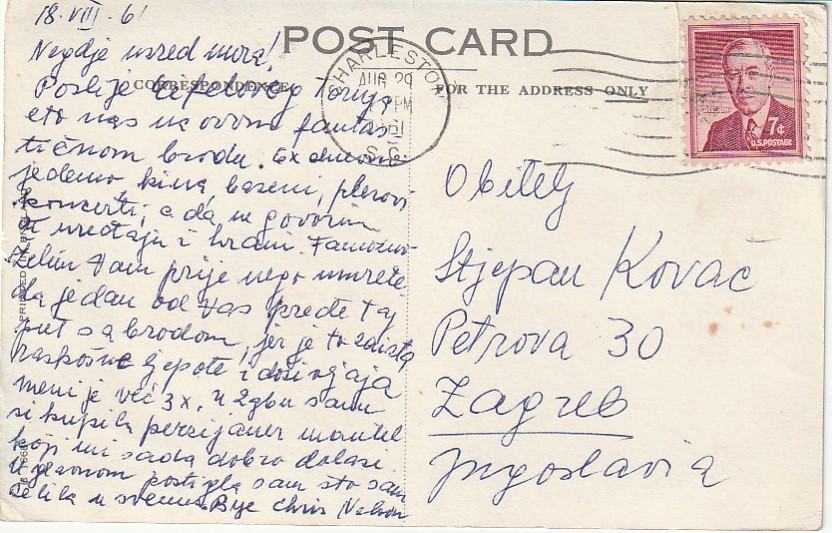 18. VIII. 61
POST CARD
Negdje usred mora!
CORRESPONDENCE
FOR THE ADDRESS ONLY
Poslije Eifelovog Tornja
eto nas na ovom fantas
tičnom brodu. 6x dnevno
jedemo kina, bazeni, plesovi
koncerti, a da ne govorim
o uređaju i hrani.
želim Vam prije nego umrete
da jedan od Vas pređe taj
put sa brodom, jer je to zaista
raskošne ljepote i doživljaja
meni je već 3x. u Zgbu sam
si kupila perzijaner mantel
koji mi sada dobro dolazi.
Uglavnom postigla sam što sam
želila u svemu. Bye Chris Nelson
CHARLESTON
AUG 29
PM
1961
S.C.
7¢
U.S. POSTAGE
Obitelj
Stjepan Kovač
Petrova 30
Zagreb
Jugoslavia
PRINTED IN